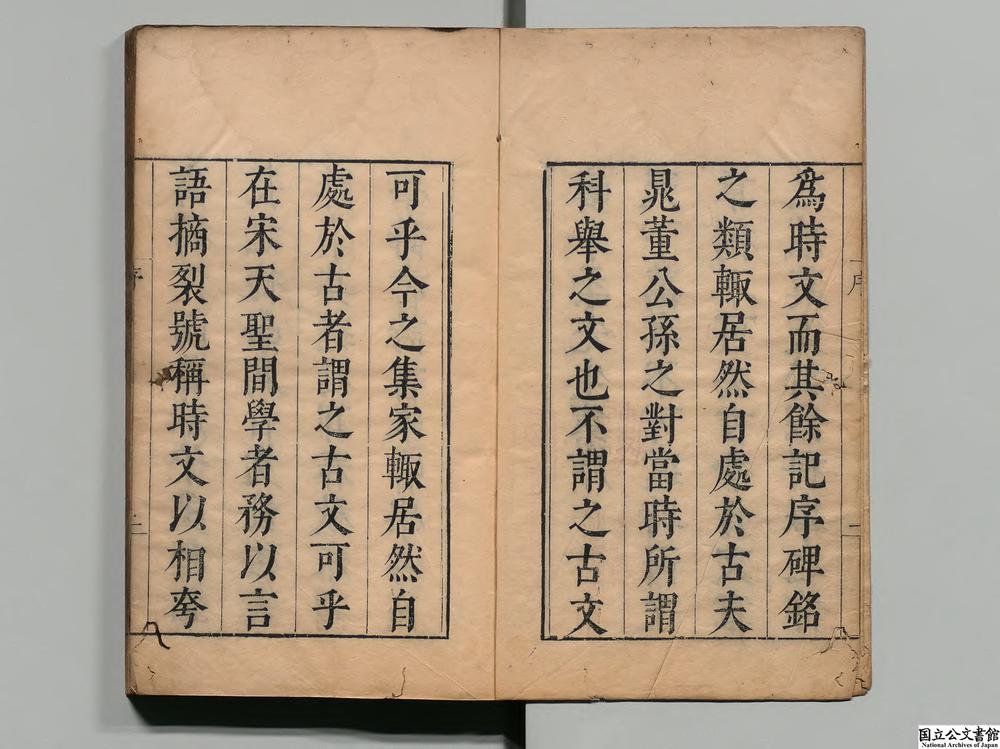 爲時文而其餘記序碑銘
之類輙居然自處於古夫
晁董公孫之對當時所謂
科舉之文也不謂之古文
可乎今之集家輙居然自
處於古者謂之古文可乎
在宋天聖間學者務以言
語摘裂號稱時文以相夸
国立公文書館
National Archives of Japan